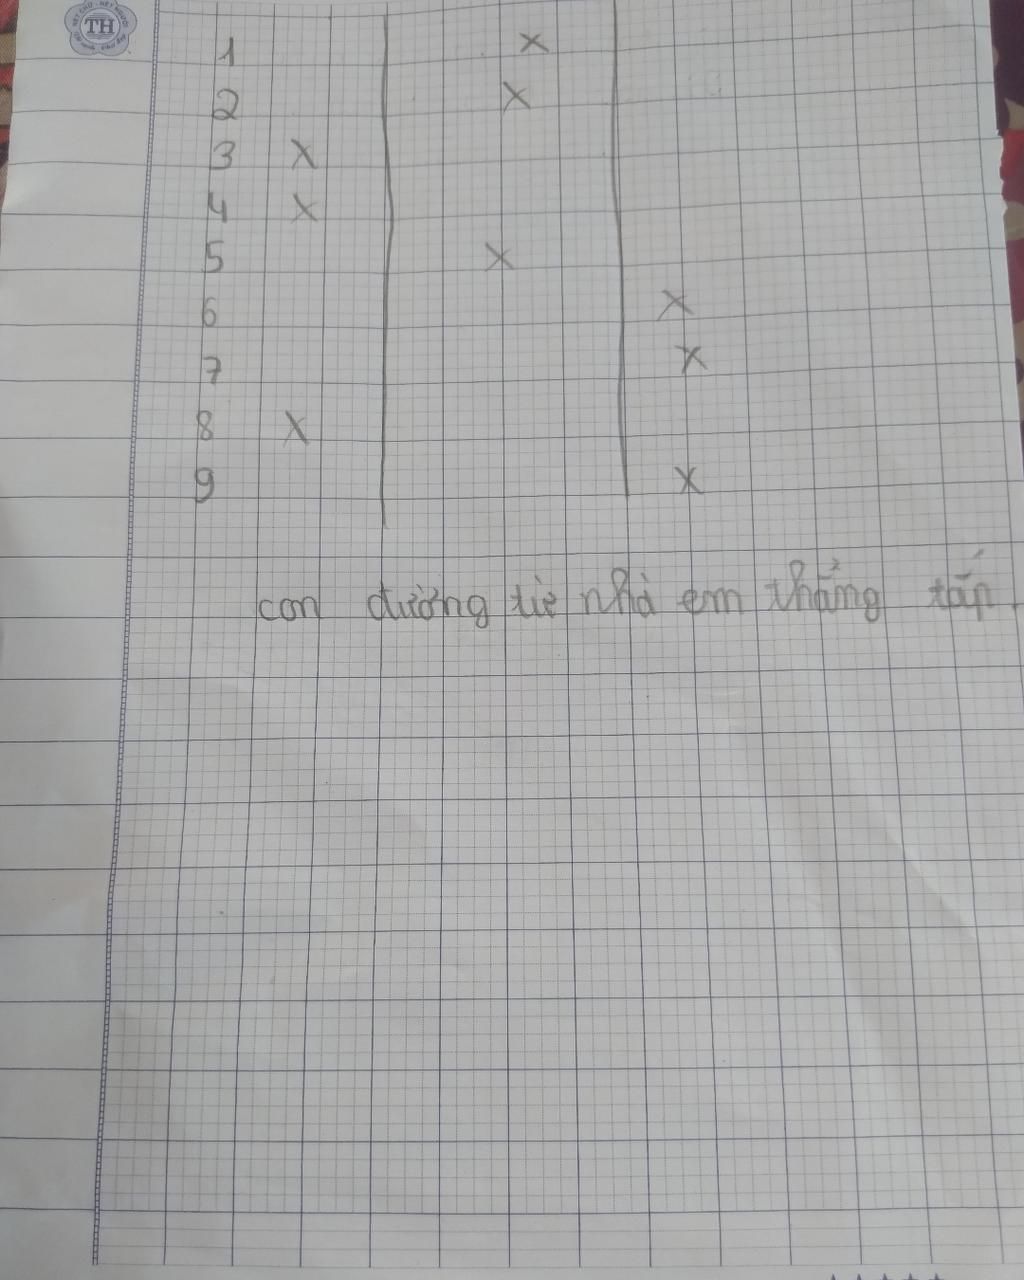 TH
1 x
2 x
3 x
4 x
5 x
6 x
7 x
8 x
9 x
con đường từ nhà em thẳng tắp.